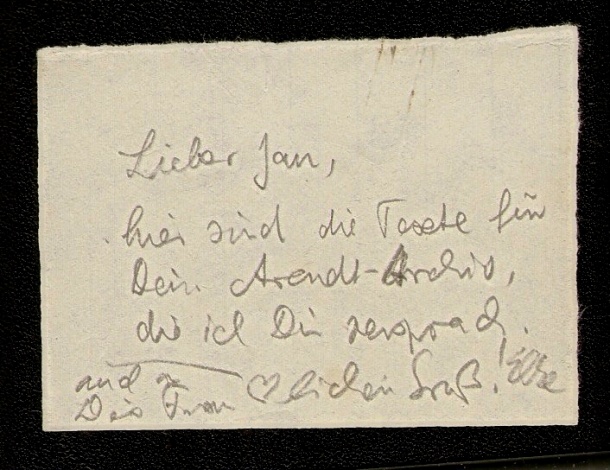 Lieber Jan,
hier sind die Texte für
Dein Arendt-Archiv,
die ich Dir versprach.
und an
♡lichen Gruß!
Frau